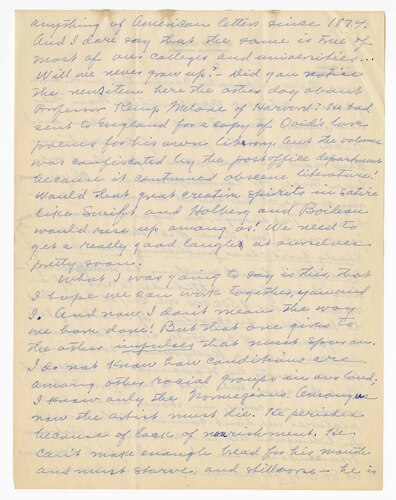 anything of American letters since 1874.
And I dare say that the same is true of
most of our colleges and universities...
Will we never grow up? - Did you notice
the news item here the other day about
Professor Kemp Malone of Harvard? He had
sent to England for a copy of Ovid's love
poems for his own library. But the volume
was confiscated by the post office department
because it contained obscene literature!
Would that great creative spirits in satire
like Swift and Holberg and Boileau
would rise up among us! We need to
get a really good laugh at ourselves
pretty soon.
What I was going to say is this, that
I hope we can work together, you and
I. And now I don't mean the way
we have done! But that one gives to
the other impulses that must spur on.
I do not know how conditions are
among other racial groups in our land;
I know only the Norwegians. Among us
now the artist must die. He perishes
because of lack of nourishment. He
can't make enough bread for his mouth
and must starve, and still worse - he is